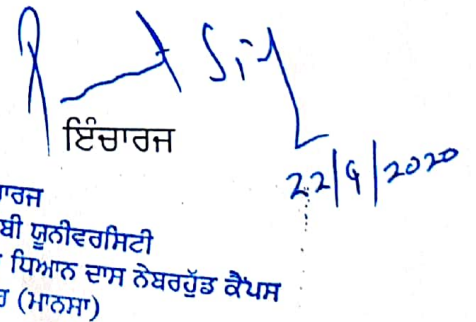 ਇੰਚਾਰਜ
22/9/2020
ਾਰਜ
ਬੀ ਯੂਨੀਵਰਸਿਟੀ
ਧਿਆਨ ਦਾਸ ਨੇਬਰਹੁੱਡ ਕੈਂਪਸ
(ਮਾਨਸਾ)